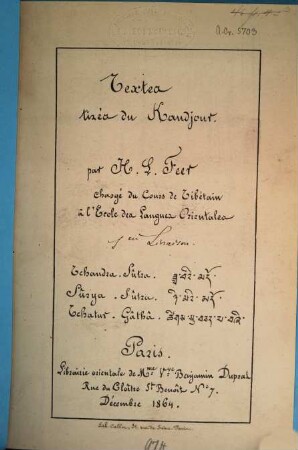 Textes
tirés du Kandjour.
par H. L. Feer
chargé du Cours de Tibétain
à l'École des Langues Orientales
Livraison.
Tchandra-Sûtra.
Sûrya-Sûtra.
Tchatur-Gâthâ.
Paris.
Librairie orientale de Mme Vve Benjamin Duprat
Rue du Cloître St Benoît No 7.
Décembre 1864.